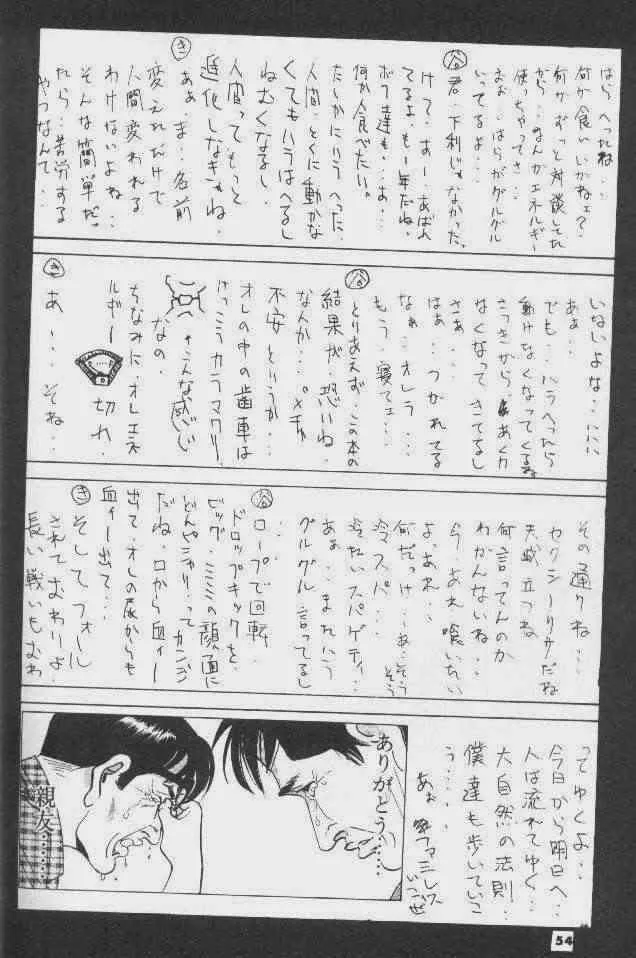 はらへったね…
何か食いにいかねェ？…
何かずっと対談してた
から…のんかエネルギー
使っちゃってさ…
おぉ…はらがグルグル
いってるよ…
谷 君…下利じゃなかった…
けて…あー…あばれ
てるよ…もー1年だね。
ボク達も…あ…
何か食べたい。
たしかにハラへった…
人間…とくに動かな
くてもハラはへるし
ねむくなるし…
人間って、もっと
進化しなきゃね…
き あぁ…ま…名前
変えただけで
人間変われる
わけないよね…
そんな簡単だ
たら…苦労する
やつなんて…
いないよな…
あぁ…
でも…ハラへったら
動けなくなってくるね
さっきから…あく力
なくなってきてるし
さぁ…
はぁ…つかれてる
なぁ…オレラ…
もう…寝てェ…
谷 とりあえず…この本の
結果が…恐いね…
なんか…ダメチャ
不安というか…
オレの中の歯車は
けっこうカラマワリ…
←こんな感じ
なの…
ちなみに…オレエネ
ルギー 切れ…
き あ…そね…
その通りね…
セクシーリサだね
天城立つね
何言ってんのか
わかんないね…
今…あれ喰いたい
よ…あれ…
何だっけ…あ…そう そう
冷スパ…
冷たいスパゲティ…
あぁ…またハラ
グルグル言ってるし
…
谷 ロープで回転…
ドロップキックを…
ビッグ・ミミミの顔面に
どんぴしゃりってカンジ
だね…口から血ィー
出て…オレの尿からも
血ィー出て…
き そしてフォール
されておわりよ…
長い戦いもおわ
ってゆくよ…
今日から明日へ…
人は流れてゆく…
大自然の法則…
僕達も歩いていこ
う…
あぉ
ファミレス
いこぜ
ありがとう……
親友………
54